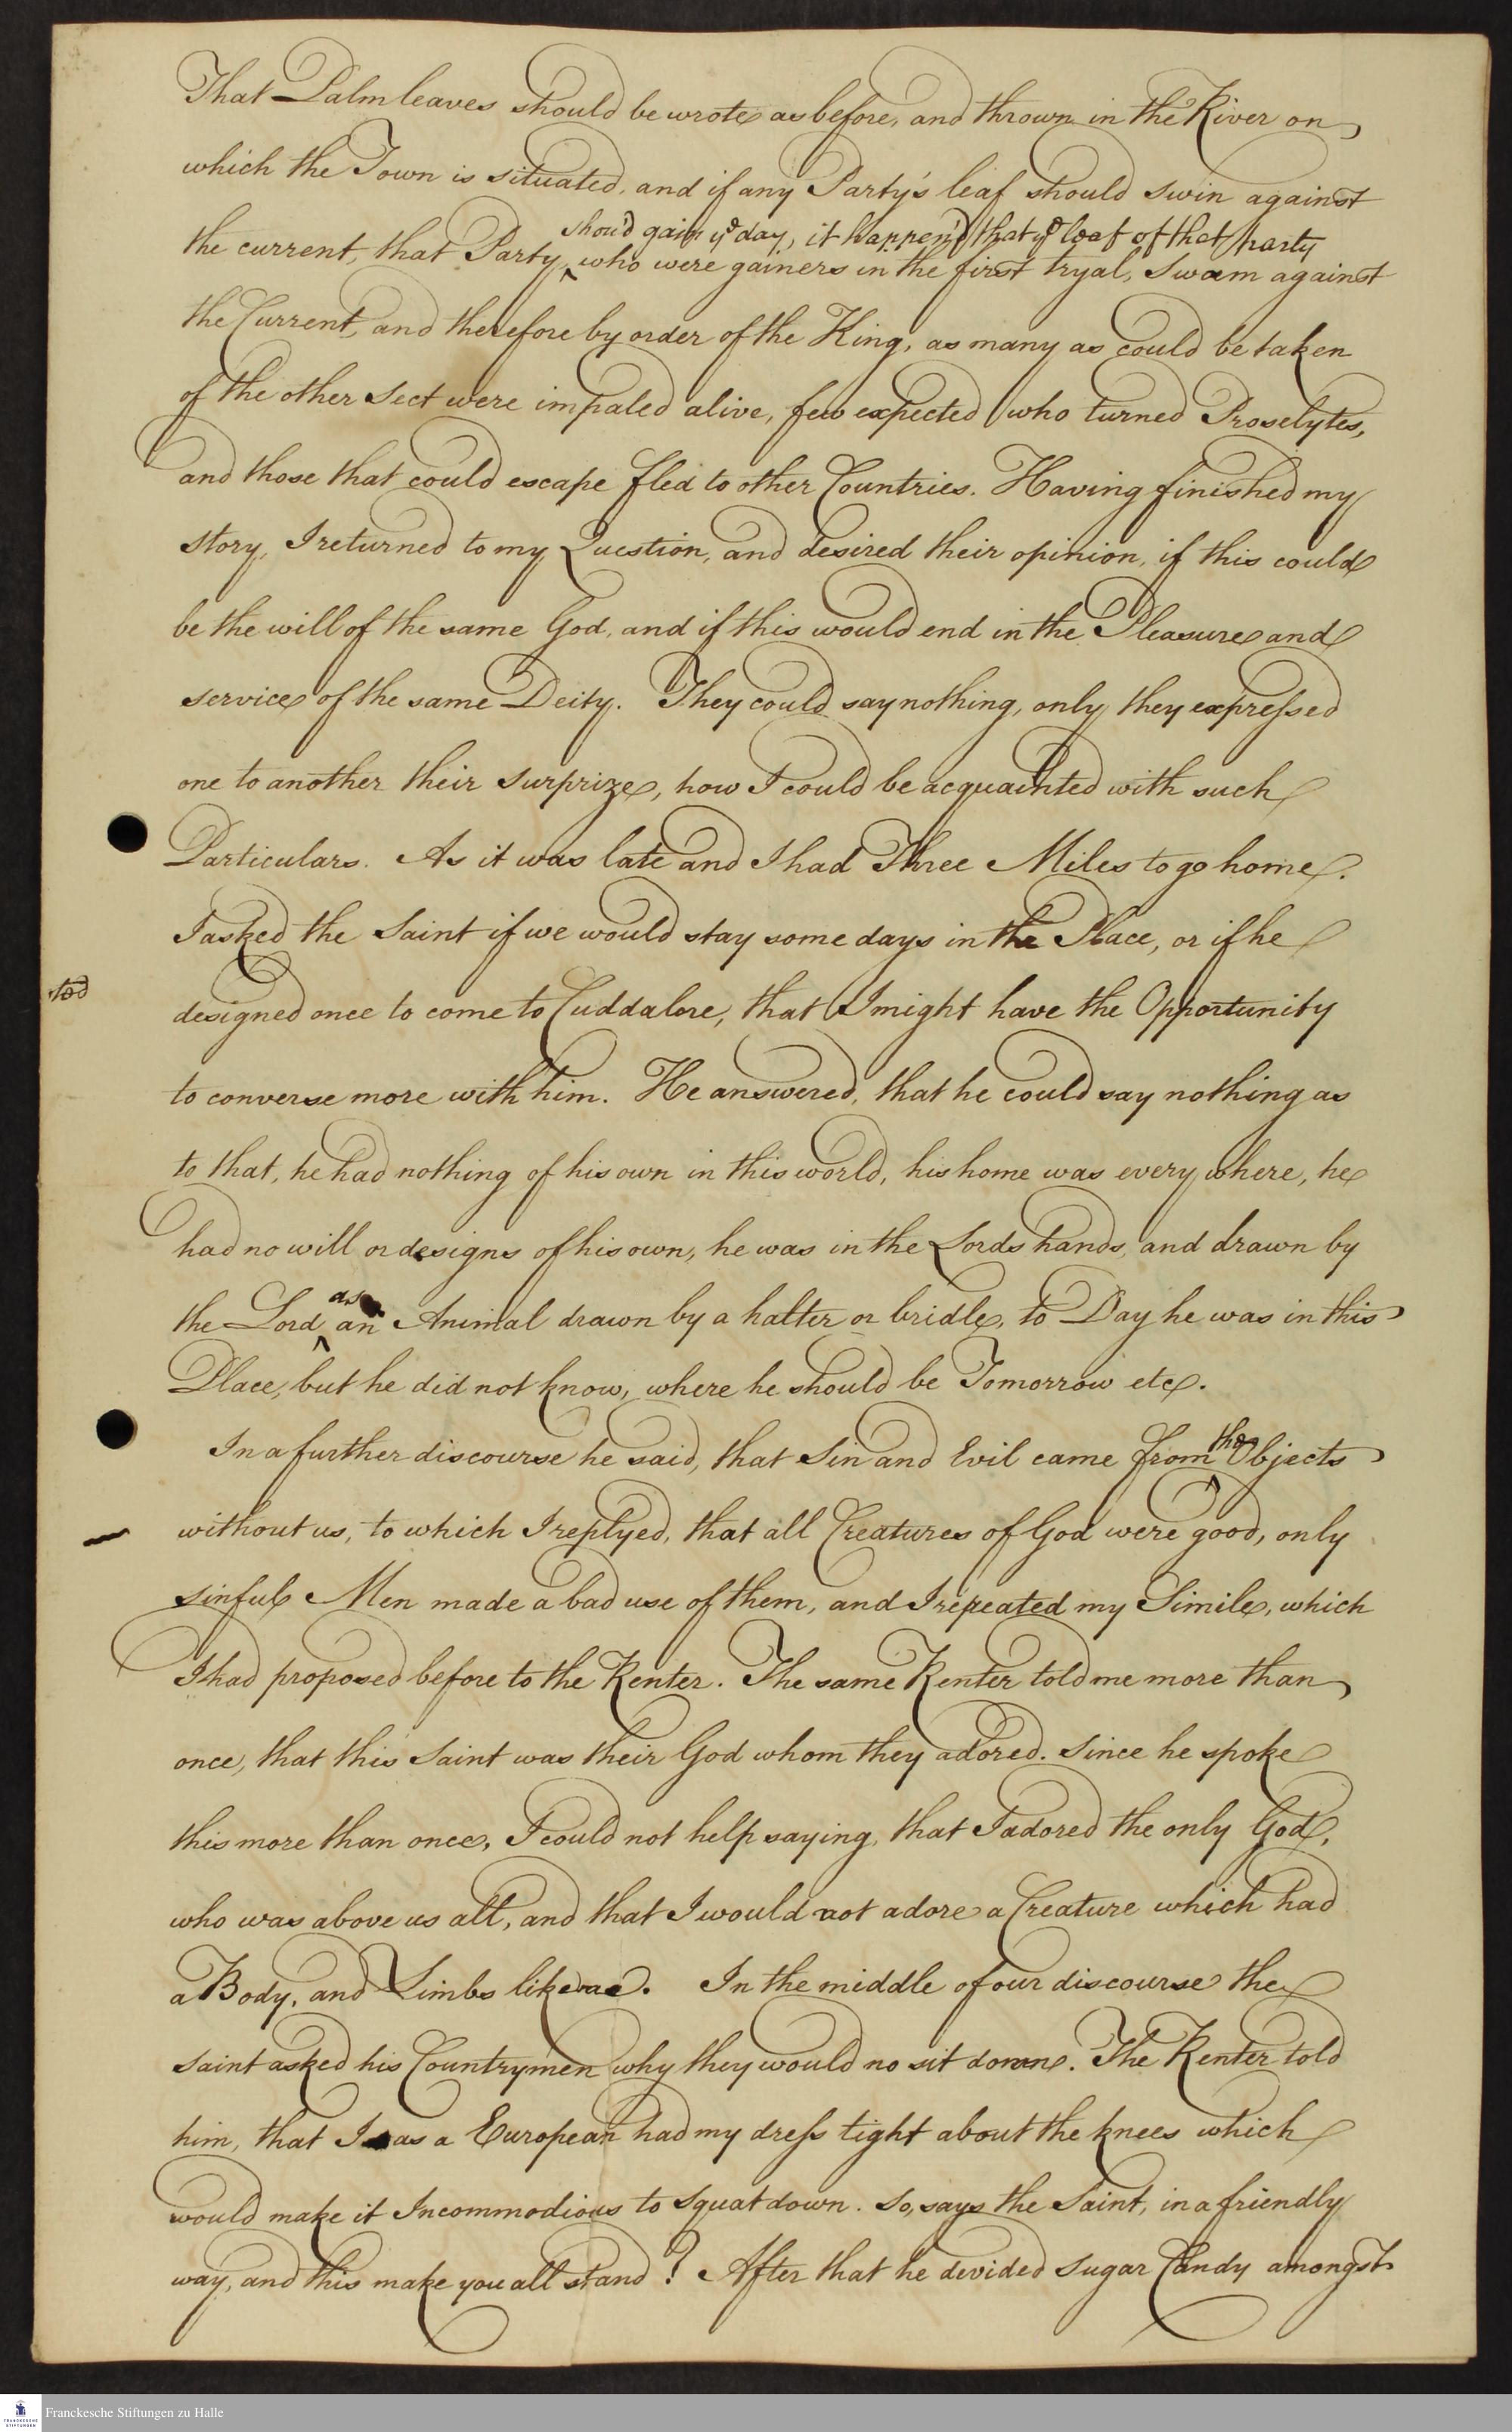 That Palmleaves should be wrote as before, and thrown in the River on
which the Town is situated, and if any Party's leaf should swin against
shou'd gain ye day, it happen'd that ye leaf of that party
the current, that Party, who were gainers in the first tryal, Swam against
the Current, and therefore by order of the King, as many as could be taken
of the other Sect were impaled alive, few expected who turned Proselytes,
and those that could escape fled to other Countries. Having finished my
story, I returned to my Question, and desired their opinion, if this could
be the will of the same God, and if this would end in the Pleasure and
service of the same Deity. They could say nothing, only they expressed
one to another their Surprize, how I could be acquainted with such
Particulars. As it was late and I had Three Miles to go home.
I asked the Saint if we would stay some days in the Place, or if he
designed once to come to Cuddalore, that I might have the Opportunity
to converse more with him. He answered, that he could say nothing as
to that, he had nothing of his own in this world, his home was every where, he
had no will or designs of his own, he was in the Lords hands, and drawn by
as
the Lord an Animal drawn by a halter or bridle, to Day he was in this
Place, but he did not know, where he should be Tomorrow etc.
the
In a further discourse he said, that Sin and Evil came from Objects
without us, to which I replyed, that all Creatures of God were good, only
sinful Men made a bad use of them, and I repeated my Simile, which
I had proposed before to the Renter. The same Renter told me more than
once, that this Saint was their God whom they adored. Since he spoke
this more than once, I could not help saying, that I adored the only God,
who was above us all, and that I would not adore a Creature which had
a Body, and Limbs like me. In the middle of our discourse the
Saint asked his Countrymen why they would no sit down. The Renter told
him, that I as a European had my dress tight about the knees which
would make it Incommodious to Squat down. So, says the Saint, in a friendly
way, and this make you all stand? After that he devided Sugar Candy amongst
Franckesche Stiftungen zu Halle